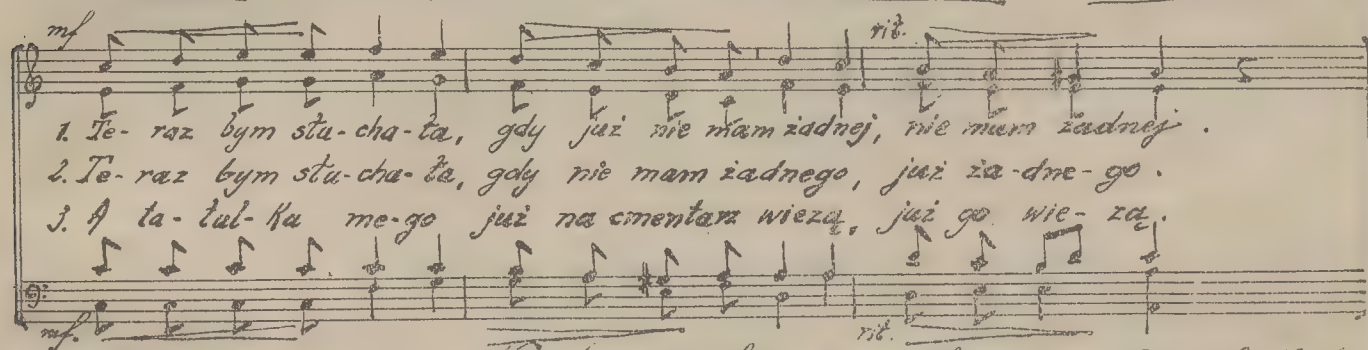 mf rit.
1. Te- raz bym słu-cha-ła, gdy już nie mam żadnej, nie mam żadnej.
2. Te- raz bym słu-cha-ła, gdy nie mam żadnego, już ża-dne-go.
3. A ta-tul-ka me-go już na cmentarz wiezą, już go wie-zą.
mf. rit.